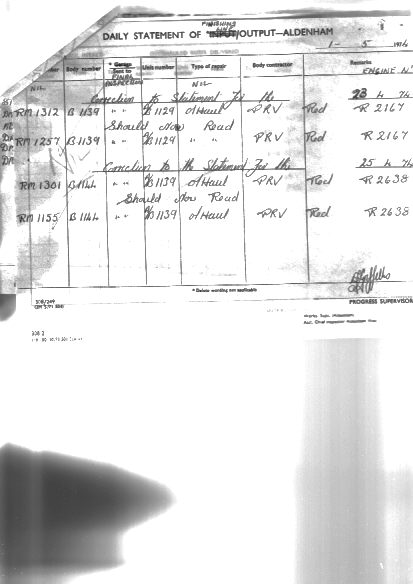 FINISHING LINE
DAILY STATEMENT OF *INPUT/OUTPUT—ALDENHAM
1 - 5 1974
number Body number * Garage Sent to Unit number Type of repair Body contractor Remarks
FINAL INSPECTION ENGINE No
NIL NIL
Correction to Statement for the 23 4 74
RM 1312 B 1139 " " B 1129 o/Haul PRV Red R 2167
Should Now Read
RM 1257 B 1139 " " B 1129 " " PRV Red R 2167
Correction to the Statement for the 25 4 74
RM 1301 B 1144 " " B 1139 o/Haul PRV Red R 2638
Should Now Read
RM 1155 B 1144 " " B 1139 o/Haul PRV Red R 2638
* Delete wording not applicable
308/249
PROGRESS SUPERVISOR
Works Supt. Aldenham
308 2